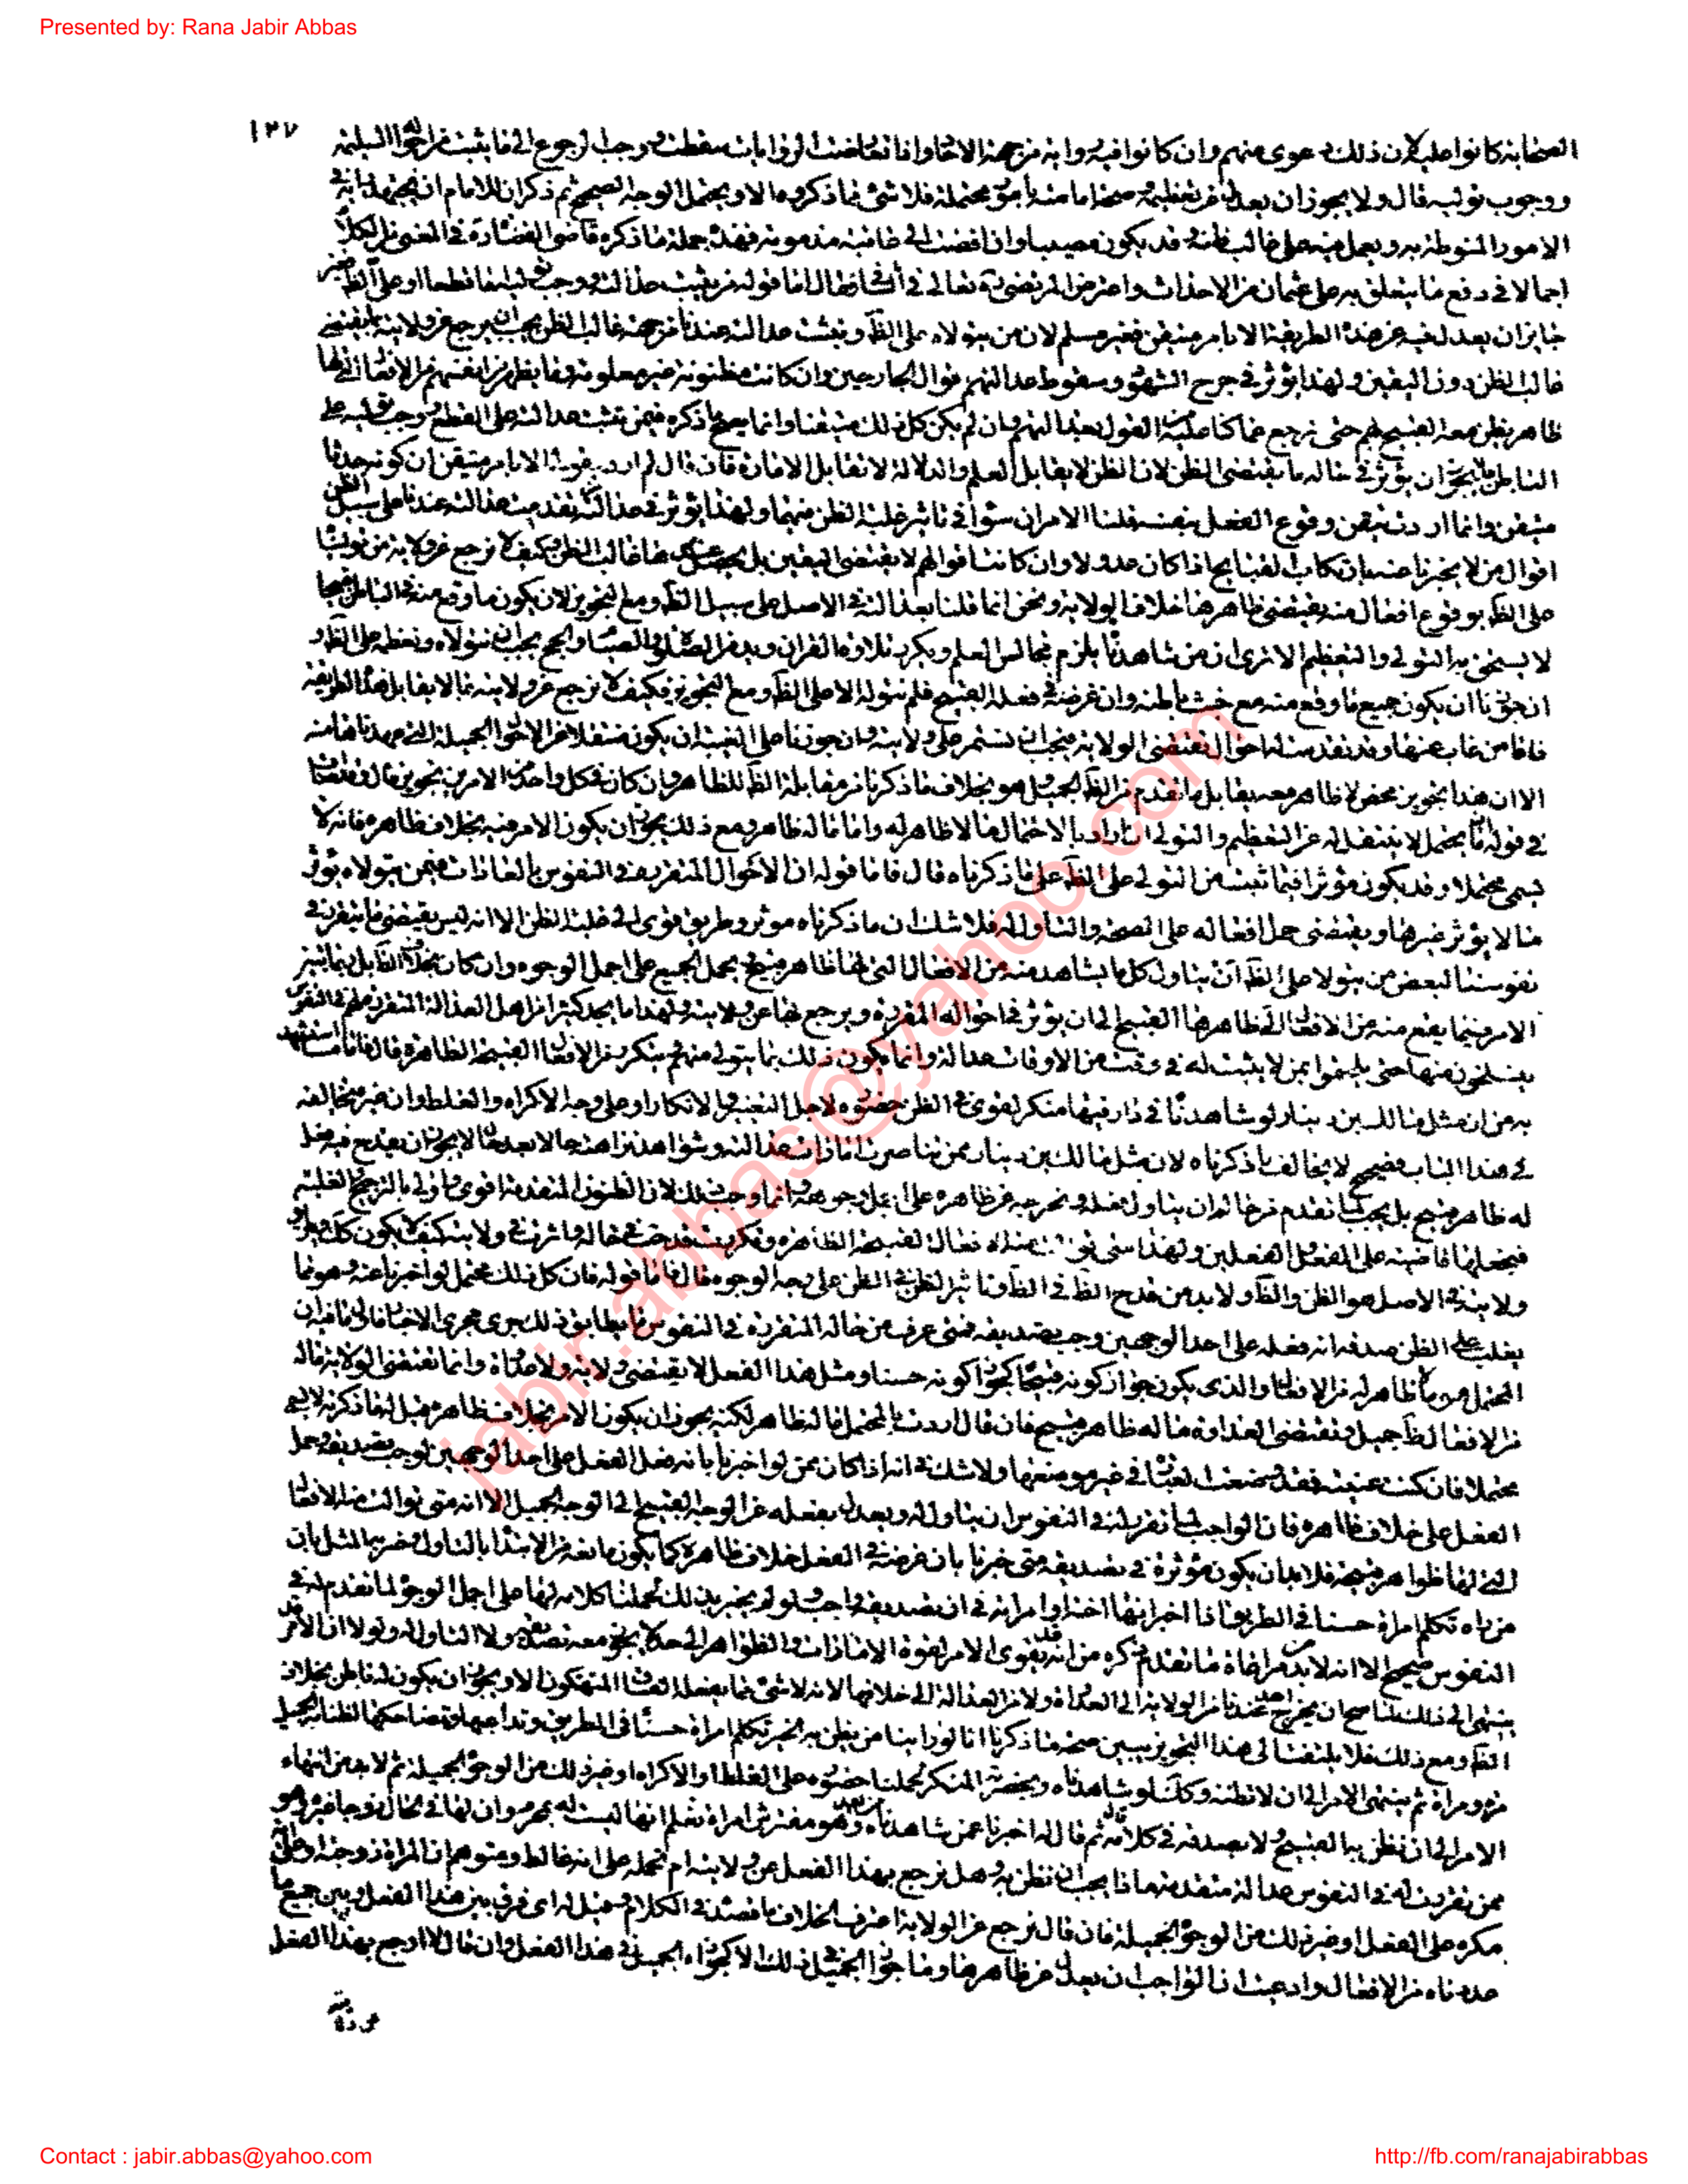 Presented by: Rana Jabir Abbas
١٣٧
الصحابة كانوا عليه لان ذلك دعوى منهم وان كانوا فيه رواية من جهة الاحاد واذا تعارضت الروايات سقطت ووجب الرجوع الى ما ثبت من احواله السليمة
ووجوب توليه قال ولا يجوز ان يعدل عن تعظيمه وصحة امامته بامور محتملة فلا شئ مما ذكروه الا ويحتمل الوجه الصحيح ثم ذكر ان للامام ان يجتهد برايه في
الامور المنوطة به ويعمل فيه على غالب ظنه وقد يكون مصيبا وان افضت الى عاقبة مذمومة فهذه جملة ما ذكره قاضي القضاة في المغني من الكلام
اجمالا في دفع ما يتعلق به على عثمان من الاحداث واعترض المرتضى ره تعالى في الشافي فقال اما قوله من تثبت عدالته ووجب توليه اما قطعا او على الظاهر فغير
جايز ان يعدل فيه عن هذه الطريقة الا بامر متيقن فغير مسلم لان من يتولاه على الظاهر وتثبت عدالته عندنا من جهة غالب الظن يجب ان يرجع عن ولايته بما يقتضي
غالب الظن دون اليقين ولهذا يؤثر في جرح الشهود وسقوط عدالتهم اقوال الجارحين وان كانت مظنونة غير معلومة وما يظهر من انفسهم من الافعال التي لها
ظاهر يظن معه القبيح بهم حتى نرجع عما كنا عليه من القول بعدالتهم وان لم يكن كل ذلك متيقنا وانما يصح ما ذكره فيمن تثبت عدالته على القطع ووجب توليه على
الباطن فلا يجوز ان يؤثر في حاله ما يقتضي الظن لان الظن لا يقابل العلم والدلالة لا تقابل الامارة فان قال لم ارد بقولي الا بامر متيقن ان كونه حدثا
متيقن وانما اردت تيقن وقوع الفعل بنفسه قلنا الامران سواء في تاثير غلبة الظن فيهما ولهذا يؤثر في عدالة من تقدمت عدالته عندنا على سبيل الظن
اقوال من لا يخبرنا عنه بارتكاب القبايح اذا كان عدولا وان كانت اقوالهم لا تقتضي اليقين بل يحصل عندها غالب الظن وكيف لا نرجع عن ولاية من توليناه
على الظاهر بوقوع افعال منه يقتضي ظاهرها خلاف الولاية ونحن انما قلنا بعدالته في الاصل على سبيل الظاهر ومع التجويز لان يكون ما وقع منه في الباطن قبيحا
لا يستحق به التولي والتعظيم الا ترى ان من شاهدناه يلزم مجالس العلم ويكرر تلاوة القران ويدمن الصلوة والصيام والحج يجب ان نتولاه ونعظمه على الظاهر و
ان جوزنا ان يكون جميع ما وقع منه مع خبث باطنه وان غرضه في فعله القبيح فلم نتوله الا على الظاهر ومع التجويز فكيف لا نرجع عن ولايته بما لا يقابل هذه الطريقة
فاما من غاب عنها وقد تقدمت له احوال تقتضي الولاية فيجب ان نستمر على ولايته وان جوزنا على الغيبة ان يكون منتقلا عن الاحوال الجميلة التي عهدناها منه
الا ان هذا تجويز محض لا ظاهر معه يقابل ما تقدم من الظاهر الجميل وهو بخلاف ما ذكرناه من مقابلة الظاهر للظاهر وان كان في كل واحد من الامرين تجويز قال وقد اصاب
في قوله ان ما يحتمل لا ينتقل له عن التعظيم والتولي ان اراد بالاحتمال ما لا ظاهر له واما ما له ظاهر ومع ذلك يجوز ان يكون الامر فيه بخلاف ظاهره فانه لا
يسمى محتملا وقد يكون مؤثرا فيما ثبت من التولي على الظاهر على ما ذكرناه قال فاما قوله ان الاحوال المتقررة في النفوس بالعادات فيمن يتولاه يؤثر
ما لا يؤثر غيرها ويقتضي حمل افعاله على الصحة والتاول له فلا شك ان ما ذكرناه مؤثر وطريق قوي الى غلبة الظن الا انه ليس يقتضي ما يتقرر في
نفوسنا لبعض من يتولا على الظاهر ان نتاول كل ما يشاهد منه من الافعال التي لها ظاهر قبيح بحمل الجميع على اجمل الوجوه وان كان بخلاف الظاهر بل ربما تبين
الامر فيما يقع منه من الافعال التي ظاهرها القبيح الى ان يؤثر في احواله المتقررة ويرجع بها عن ولايته ولهذا ما نجد كثيرا من اهل العدالة المتقررة لهم في النفوس
ينسلخون منها حتى يلحقوا بمن لا يثبت له في وقت من الاوقات عدالة وانما يكون ذلك بما يتوالى منهم ويتكرر من الافعال القبيحة الظاهرة قال فاما ما استشهد
به من ان مثل مالك بن دينار لو شاهدناه في دار فيها منكر لقوي في الظن حضوره لاجل التغيير والانكار او على وجه الاكراه والغلط وان غيره يخالفه
في هذا الباب فصحيح لا يخالف ما ذكرناه لان مثل مالك بن دينار ممن تناصرت امارات عدالته وشواهد نزاهته حالا بعد حال لا يجوز ان يقدح فيه فعل
له ظاهر قبيح بل يجب لما تقدم من حاله ان نتاول فعله ونخرجه عن ظاهره على اجمل وجوهه وانما وجب ذلك لان الظنون المتقدمة اقوى واولى بالترجيح والغلبة
فنجعلها قاضية على الفعل والفعلين ولهذا متى توالت منه الافعال القبيحة الظاهرة وتكررت قدحت في حاله واثرت في ولايته كيف لا يكون كذلك وطريق
ولايته في الاصل هو الظن والظاهر ولا بد من قدح الظاهر في الظاهر وتاثير الظن في الظن على وجه الوجوه قال فاما قوله فان كل ذلك محتمل لو اخبرنا عنه وهو مما
يغلب على الظن صدقه انه فعله على احد الوجهين وجب تصديقه فمتى عرف من حاله المتقررة في النفوس ما يطابق ذلك جرى مجرى الاخبار فاول ما فيه ان
المحتمل هو ما لا ظاهر له من الافعال والذي يكون جواز كونه قبيحا كجواز كونه حسنا ومثل هذا الفعل لا يقتضي ولاية ولا عداوة وانما تقتضي الولاية ما له
من الافعال ظاهر جميل وتقتضي العداوة ما له ظاهر قبيح فان قال اردت بالمحتمل ما له ظاهر لكنه يجوز ان يكون الامر بخلاف ظاهره قيل له ما ذكرته لا يسمى
محتملا فان كنت عنيته فقد وضعت العبارة في غير موضعها ولا شك في انه اذا كان ممن لو اخبرنا بانه فعل الفعل على احد الوجهين لوجب تصديقه وحمل
الفعل على خلاف ظاهره فان الواجب لما تقرر له في النفوس ان يتاول له ويعدل بفعله عن الوجه القبيح الى الوجه الجميل الا انه متى توالت منه الافعال
التي لها ظواهر قبيحة فلا بد ان يكون مؤثرة في تصديقه متى خبرنا بان غرضه في الفعل خلاف ظاهره كما يكون مانعة من الابتداء بالتاول وضرب المثل بان
من راه تكلم امراة حسناء في الطريق اذا اخبر انها اخته او امراته في ان تصديقه واجب ولو لم يخبر بذلك لحملنا كلامه لها على اجمل الوجوه لما تقدم له في
النفوس صحيح الا انه لا بد من مراعاة ما تقدم ذكره من انه قد يقوى الامر لقوة الامارات والظواهر الى حد لا يجوز معه تصديقه ولا التاول له ولولا ان الامر قد
ينتهي الى ذلك لما صح ان يخرج احد عندنا من الولاية الى العداوة ولا من العدالة الى خلافها لانه لا شئ مما يفعله الفساق المتهتكون الا ويجوز ان يكون له باطن بخلاف
الظاهر ومع ذلك فلا يلتفت الى هذا التجويز يبين صحة ما ذكرنا انا لو راينا من يظن به الخير تكلم امراة حسناء في الطريق ويداعبها ويضاحكها لظننا به الجميل
مرة ومراة ثم ينتهي الامر الى ان لا نظنه وكذلك لو شاهدناه وبحضرته المنكر لحملنا حضوره على الغلط او الاكراه او غير ذلك من الوجوه الجميلة ثم لا بد من انتهاء
الامر الى ان نظن به القبيح ولا نصدقه في كلامه ثم قال له اخبرنا عمن شاهدناه من بعد وهو مفترش امراة نعلم انها ليست له بمحرم وان لها في الحال زوجا غيره وهو
ممن تقررت له في النفوس عدالة متقدمة ما ذا يجب ان نظن به وهل نرجع بهذا الفعل عن ولايته ام نحمله على انه غالط ومتوهم ان المراة زوجته او على انه
مكره على الفعل او غير ذلك من الوجوه الجميلة فان قال نرجع عن الولاية اعترف بخلاف ما قصده في الكلام وقيل له اي فرق بين هذا الفعل وبين جميع ما
عددناه من الافعال وادعيت ان الواجب ان يعدل عن ظاهرها وما جواز الجميل في ذلك الا كجواز الجميل في هذا الفعل وان قال لا ارجع بهذا الفعل
jabir.abbas@yahoo.com
Contact : jabir.abbas@yahoo.com
http://fb.com/ranajabirabbas